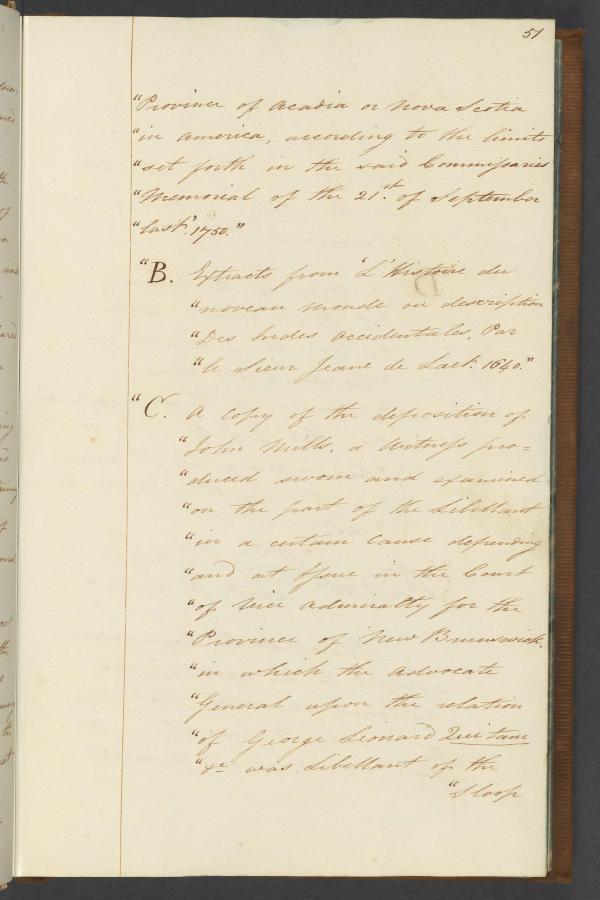 51
"Province of Acadia or Nova Scotia
"in America, according to the limits
"set forth in the said Commissaries
"Memorial of the 21st. of September
"last." 1750."
"B. Extracts from "L'Histoire du
"noveau monde ou description
"Des Indes Occidentales, Par
"le Sieur Jeane de Laet. 1640."
"C. A Copy of the deposition of
"John Mills, a Witness pro=
"duced sworn and examined
"on the part of the Libellant
"in a certain Cause depending
"and at Issue in the Court
"of Vice Admiralty for the
"Province of New Brunswick,
"in which the Advocate
"General upon the relation
"of George Leonard Qui tam
"&c was Libellant of the
"Sloop